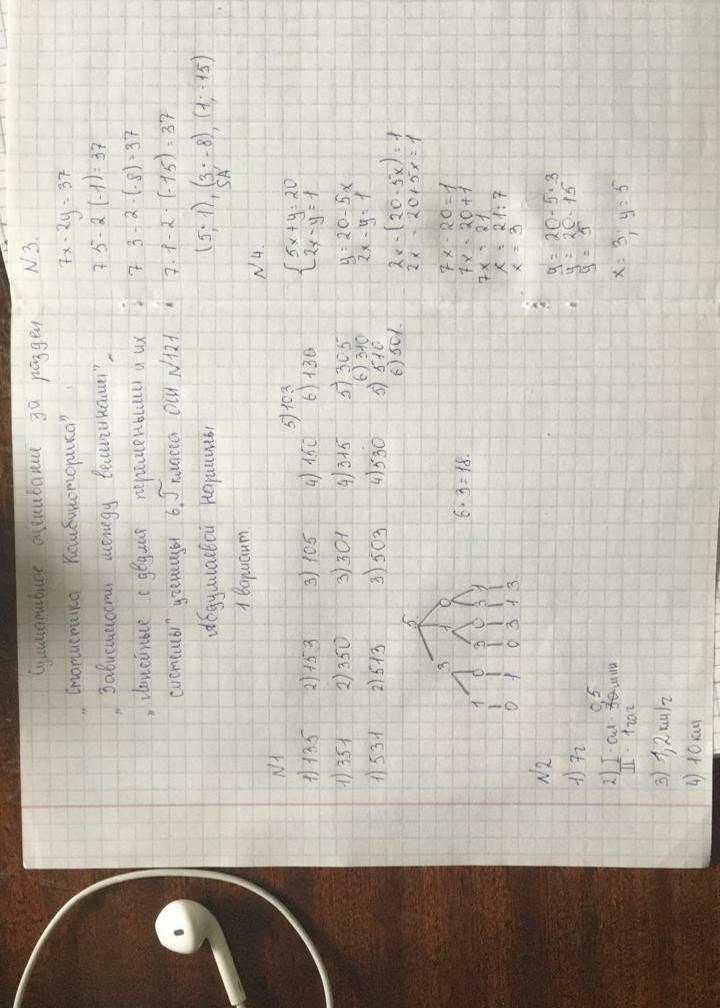 Суммативное оценивание за раздел
"Статистика Комбиноторика"
"Зависимости между величинами",
"Линейные с двумя переменными и их
системы" ученицы 6 "Г" класса ОШ №121
Абдумаевой Наримы
1 вариант
№1
5) 103
1) 135 2) 153 3) 105 4) 150 6) 130
1) 351 2) 350 3) 301 4) 315 5) 305
6) 310
1) 531 2) 513 3) 503 4) 530 5) 510
6) 501
5
3 1 0
1 0 3 0 3 1
0 1 0 3 1 3
6 · 3 = 18.
№2
1) 7г
0,5
2) I - ост. 30 мин
II - 1 час
3) 1,2 км/г
4) 10 км
№3.
7x - 2y = 37
7 · 5 - 2 · (-1) = 37
7 · 3 - 2 · (-8) = 37
7 · 1 - 2 · (-15) = 37
(5; -1), (3; -8), (1; -15)
№4.
{ 5x + y = 20
2x - y = 1
y = 20 - 5x
2x - y = 1
2x - (20 - 5x) = 1
2x - 20 + 5x = 1
7x - 20 = 1
7x = 20 + 1
7x = 21
x = 21 : 7
x = 3
y = 20 - 5 · 3
y = 20 - 15
y = 5
x = 3; y = 5